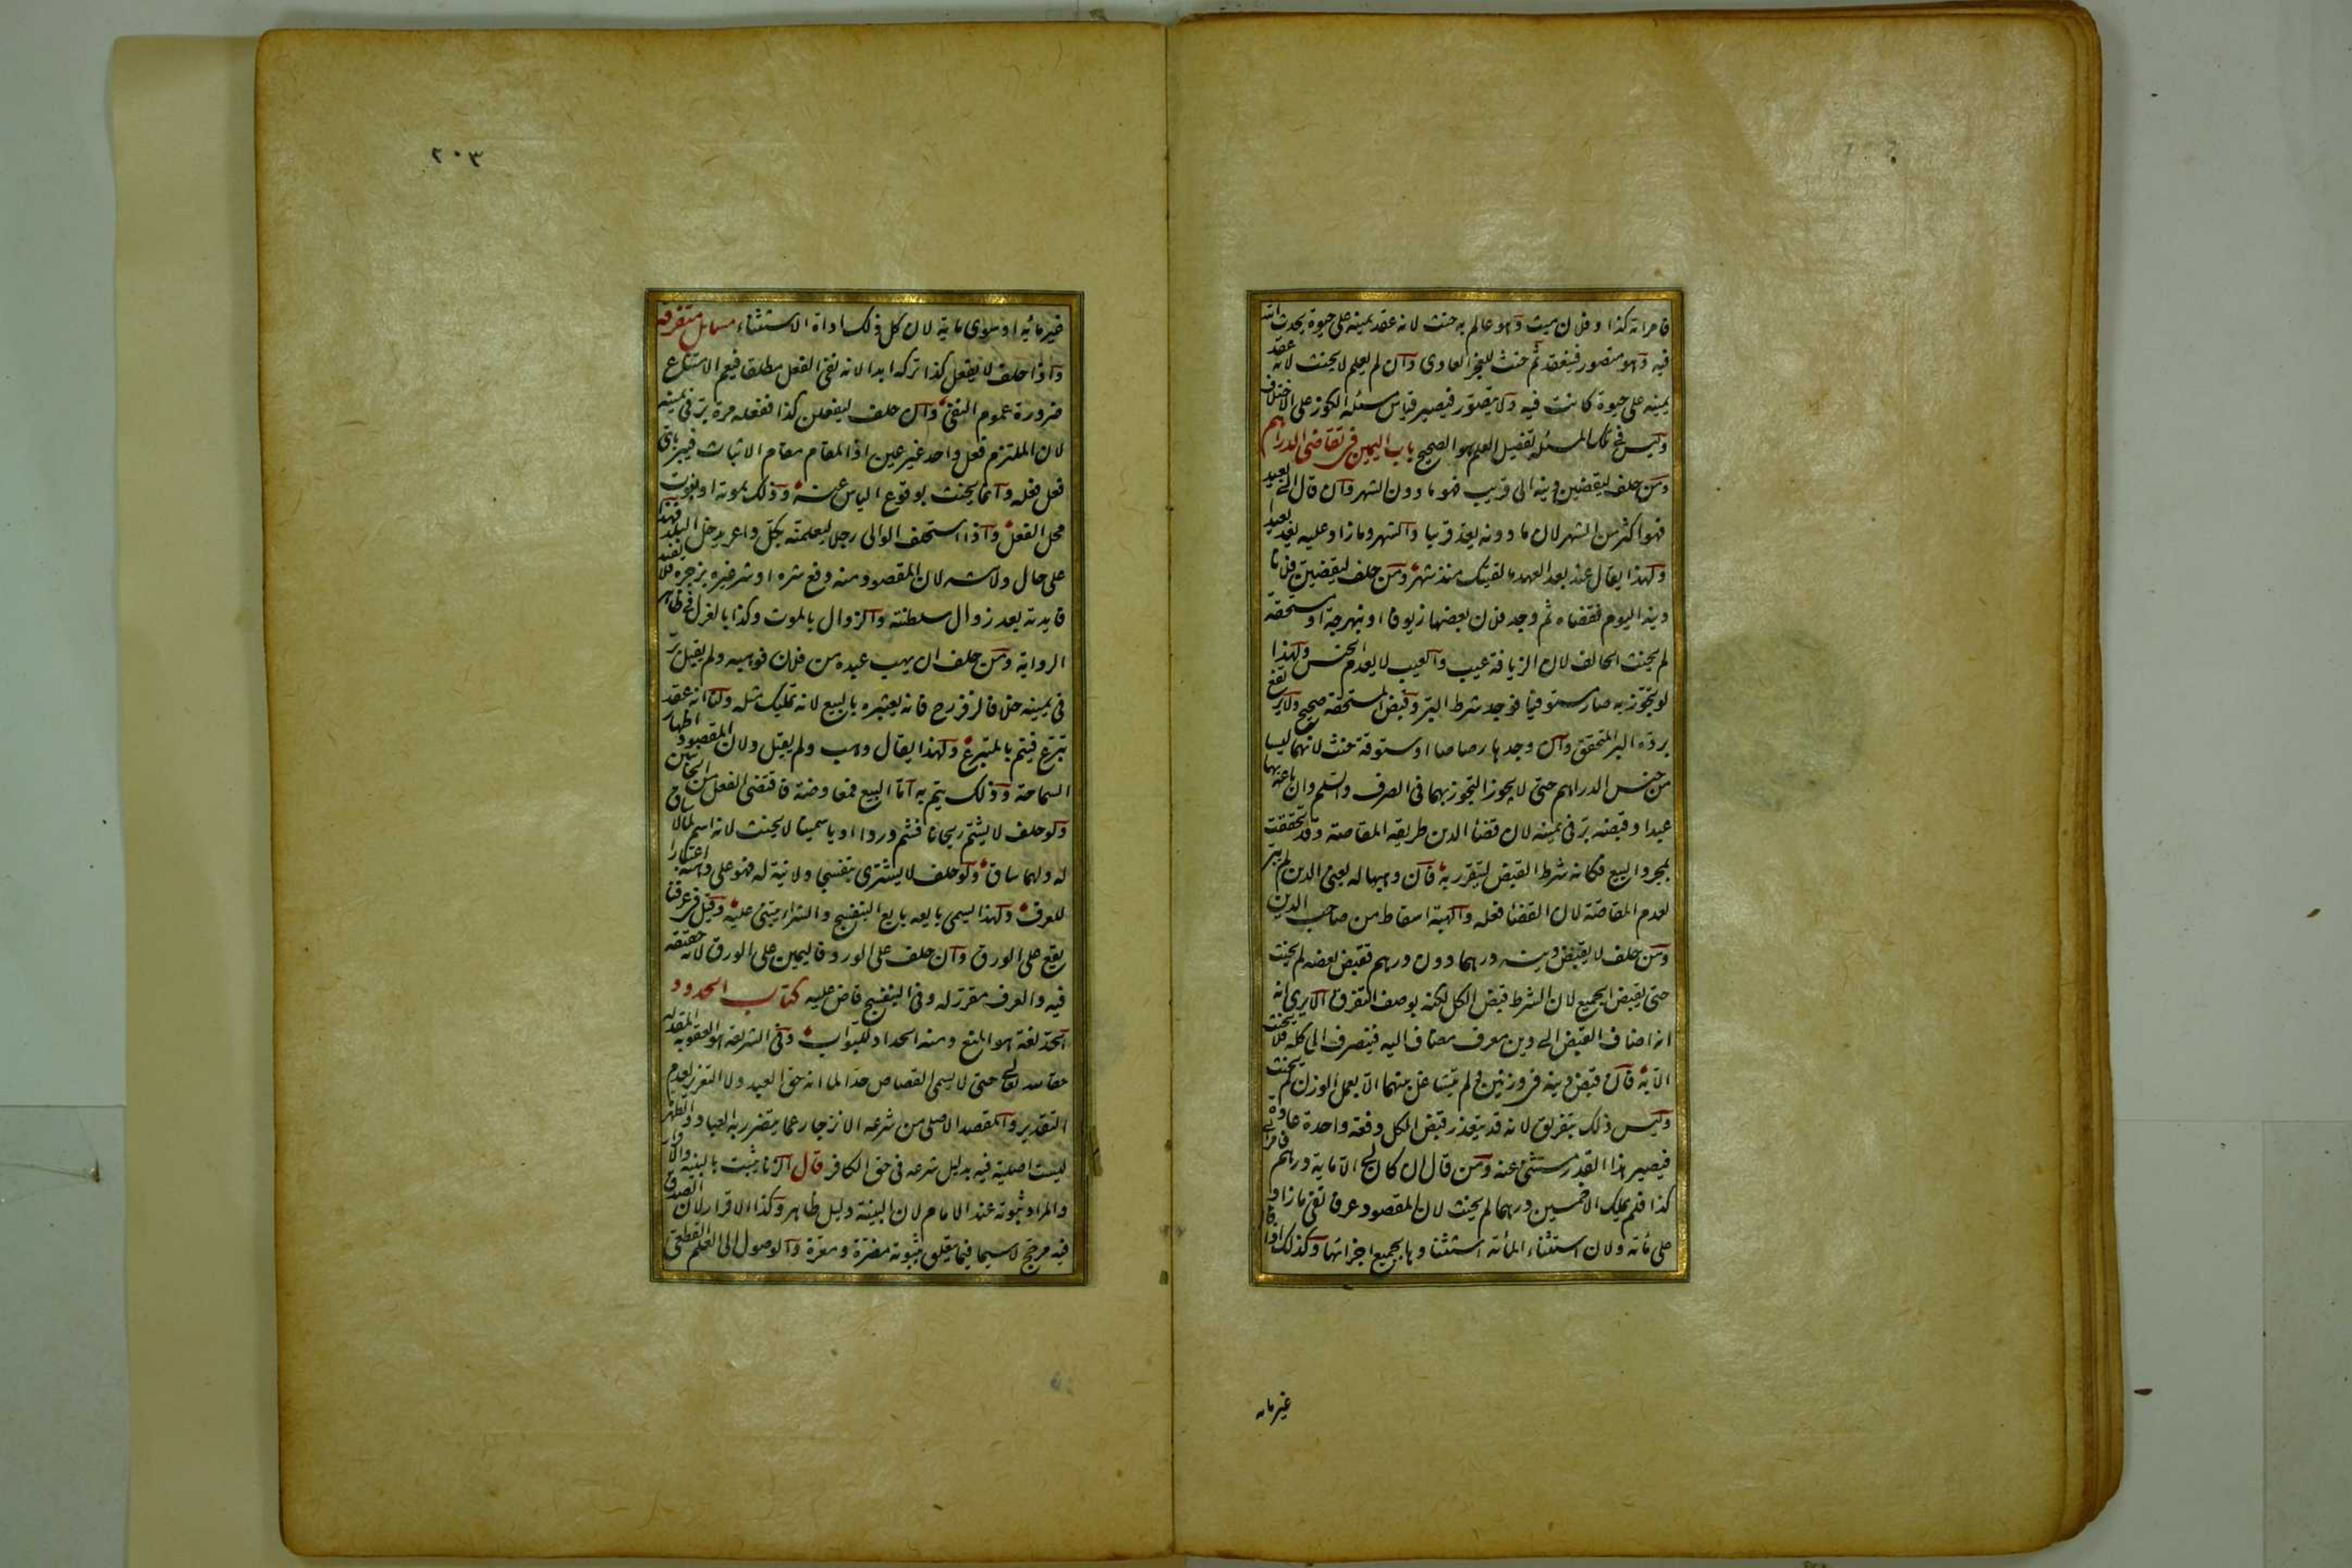 فامراته كذا وفلان ميت وهو عالم به حنث لانه عقد يمينه على حيوة يحدث الله
فيه وهو متصور فينعقد ثم حنث للعجز العادى وان لم يعلم لا يحنث لانه عقد
يمينه على حيوة كانت فيه ولا يتصور فيصير قياس مسئله الكوز على الاختلاف
وليس فى تلك المسئله تفصيل العلم هو الصحيح باب اليمين فى تقاضى الدراهم
ومن حلف ليقضين دينه الى قريب فهو ما دون الشهر وان قال الى بعيد
فهو اكثر من الشهر لان ما دونه يعد قريبا والشهر وما زاد عليه يعد بعيدا
ولهذا يقال عند بعد العهد ما لقيتك منذ شهر ومن حلف ليقضين فلانا
دينه اليوم فقضاه ثم وجد فلان بعضها زيوفا او نبهرجة او مستحقة
لم يحنث الحالف لان الزيافة عيب والعيب لا يعدم الجنس ولهذا
لو تجوز به صار مستوفيا فوجد شرط البر وقبض المستحقة صحيح ولا يرتفع
برده البر المتحقق وان وجدها رصاصا او ستوقة حنث لانهما ليسا
من جنس الدراهم حتى لا يجوز التجوز بهما فى الصرف والسلم وان باعه بها
عبدا وقبضه بر فى يمينه لان قضا الدين طريقه المقاصة وقد تحققت
بمجرد البيع فكانه شرط القبض ليتقرر به فان وهبها له يعنى الدين لم يبر
لعدم المقاصة لان القضا فعله والهبة اسقاط من صاحب الدين
ومن حلف لا يقبض دينه درهما دون درهم فقبض بعضه لم يحنث
حتى يقبض الجميع لان الشرط قبض الكل لكنه بوصف التفرق الا يرى انه
انه اضاف القبض الى دين معرف مضاف اليه فينصرف الى كله فلا يحنث
الا به فان قبض دينه فى وزنين ولم يتشاغل بينهما الا بعمل الوزن لم يحنث
وليس ذلك بتفريق لانه قد يتعذر قبض الكل دفعة واحدة عادة
فيصير هذا القدر مستثنى عنه ومن قال ان كان لى الا ماية درهم فامراتى
كذا فلم يملك الا خمسين درهما لم يحنث لان المقصود عرفا نفى ما زاد
على مائه ولان استثناء المائه استثناوها بجميع اجزائها وكذلك اذا قال
غير مايه
٢٠٣
غير مائه او سوى ماية لان كل ذلك اداة الاستثناء مسايل متفرقه
واذا حلف لا يفعل كذا تركه ابدا لانه نفى الفعل مطلقا فيعم الامتناع
ضرورة عموم النفى وان حلف ليفعلن كذا ففعله مرة بر فى يمينه
لان الملتزم فعل واحد غير عين اذ المقام مقام الاثبات فيبر باى
فعل فعله وانما يحنث بوقوع الياس عنه وذلك بموته او بفوت
محل الفعل واذا استحلف الوالى رجلا ليعلمنه بكل داعر يدخل البلد فهذا
على حال ولايته لان المقصود منه دفع شره او شر غيره بزجره فلا يفيد
فايدته بعد زوال سلطنته والزوال بالموت وكذا بالعزل فى ظاهر
الرواية ومن حلف ان يهب عبده من فلان فوهبه ولم يقبل بر
فى يمينه خلافا لزفر رح فانه يعتبره بالبيع لانه تمليك مثله ولنا انه عقد
تبرع فيتم بالمتبرع ولهذا يقال وهب ولم يقبل ولان المقصود اظهار
السماحة وذلك يتم به اما البيع فمعاوضة فاقتضى الفعل من الجانبين
ولو حلف لا يشتم ريحانا فشم وردا او ياسمينا لا يحنث لانه اسم لما لا ساق
له ولهما ساق ولو حلف لا يشترى بنفسجا ولا نية له فهو على دهنه اعتبارا
للعرف ولهذا يسمى بايعه بايع البنفسج والشراء يبتنى عليه وقيل فى عرفنا
يقع على الورق وان حلف على الورد فاليمين على الورق لانه حقيقه
فيه والعرف مقرر له وفى البنفسج قاض عليه كتاب الحدود
الحد لغة هو المنع ومنه الحداد للبواب وفى الشريعه هو العقوبه المقدره
حقا لله تعالى حتى لا يسمى القصاص حدا لما انه حق العبد ولا التعزير لعدم
التقدير والمقصد الاصلى من شرعه الانزجار عما يتضرر به العباد والطهر
ليست اصلية فيه بدليل شرعه فى حق الكافر قال الزنا يثبت بالبينه والاقرار
والمراد ثبوته عند الامام لان البينة دليل ظاهر وكذا الاقرار لان الصدق
فيه مرجح لا سيما فيما يتعلق بثبوته مضرة ومعرة والوصول الى العلم القطعى